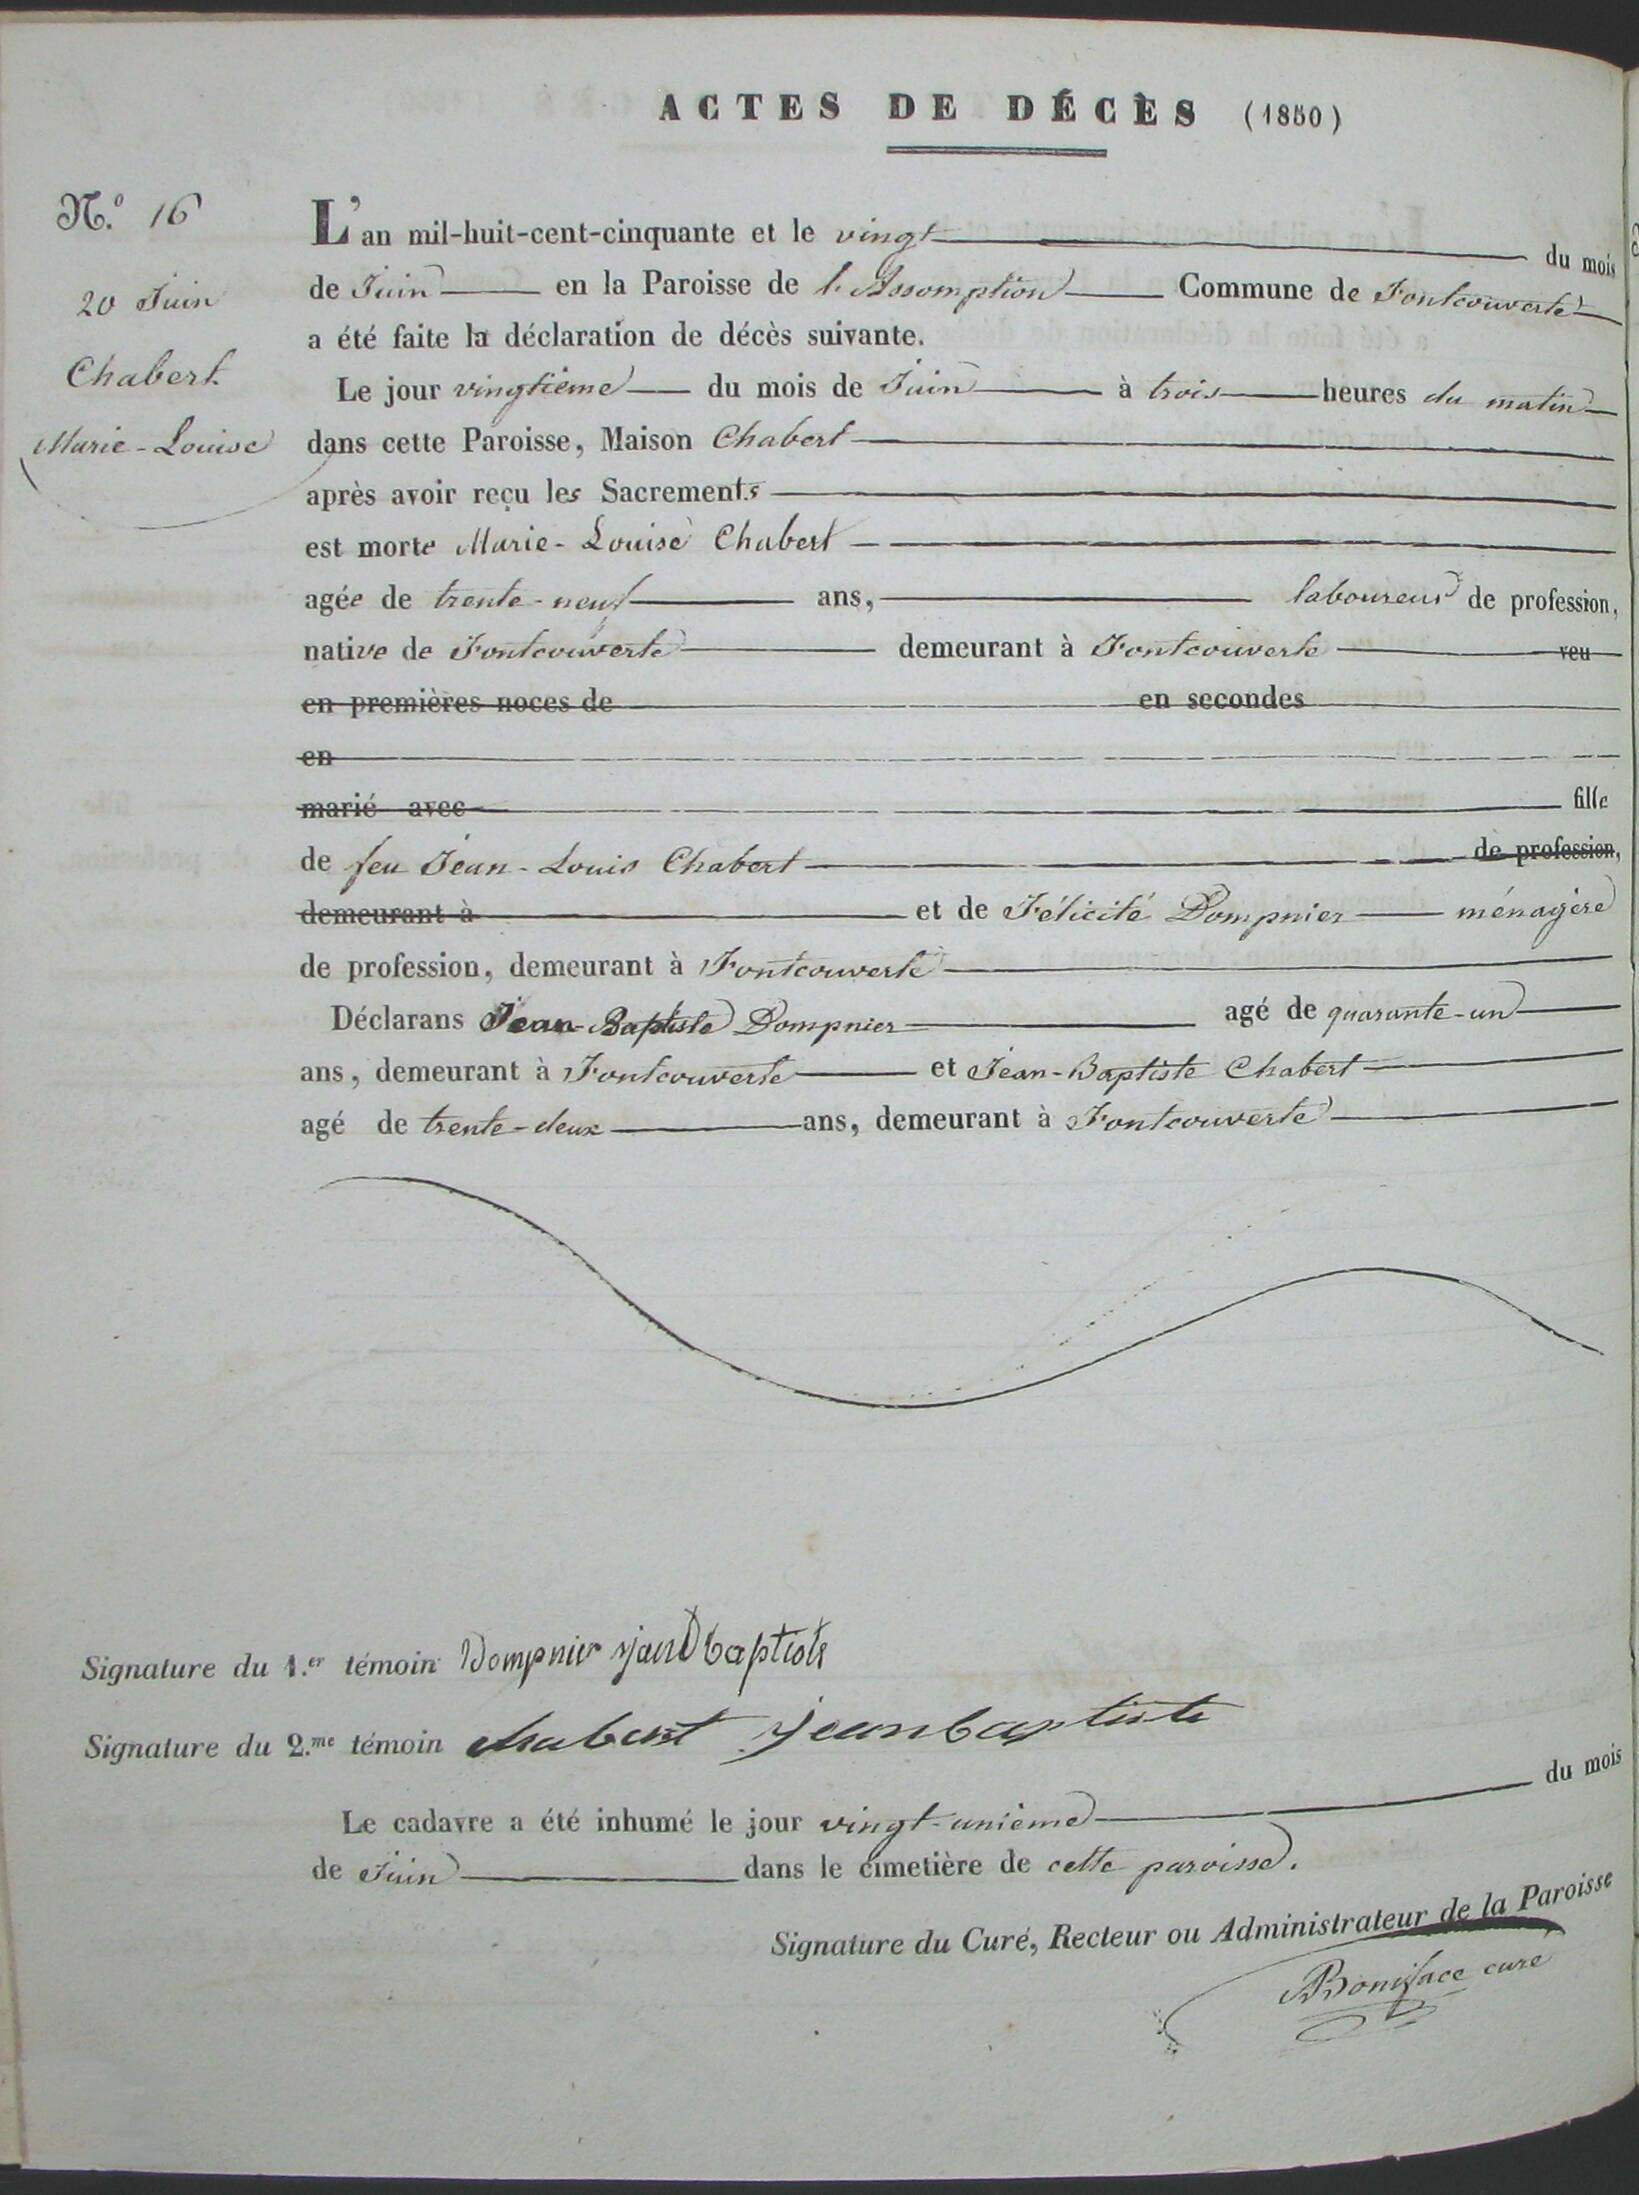 ACTES DE DÉCÈS (1850)
N.º 16
20 Juin
Chabert
Marie-Louise
L'an mil-huit-cent-cinquante et le vingt du mois
de Juin en la Paroisse de l'Assomption Commune de Fontcouverte
a été faite la déclaration de décès suivante.
Le jour vingtième du mois de Juin à trois heures du matin
dans cette Paroisse, Maison Chabert
après avoir reçu les Sacrements
est morte Marie-Louise Chabert
agée de trente-neuf ans, laboureur de profession,
native de Fontcouverte demeurant à Fontcouverte veu
en premières noces de en secondes
en
marié avec fille
de feu Jean-Louis Chabert de profession,
demeurant à et de Félicité Dompnier ménagère
de profession, demeurant à Fontcouverte
Déclarans Jean-Baptiste Dompnier agé de quarante-un
ans, demeurant à Fontcouverte et Jean-Baptiste Chabert
agé de trente-deux ans, demeurant à Fontcouverte
Signature du 1.er témoin Dompnier jean baptiste
Signature du 2.me témoin chabert jeanbaptiste
Le cadavre a été inhumé le jour vingt-unième du mois
de Juin dans le cimetière de cette paroisse.
Signature du Curé, Recteur ou Administrateur de la Paroisse
Boniface curé